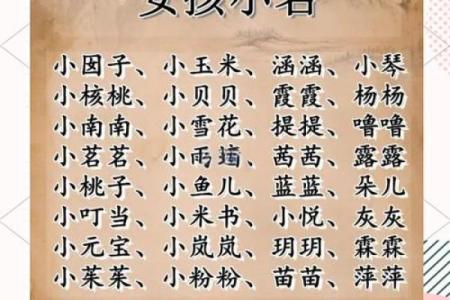 女孩小名
小囡子、小玉米、涵涵、小琴
小核桃、小贝贝、霞霞、杨杨
小南南、小雪花、提提、噜噜
小茗茗、小雨、茜茜、露露
小桃子、小鱼儿、蓝蓝、朵儿
小叮当、小米书、小悦、灰灰
小元宝、小岚岚、玥玥、霖霖
小茱茱、小粉粉、苗苗、萍萍